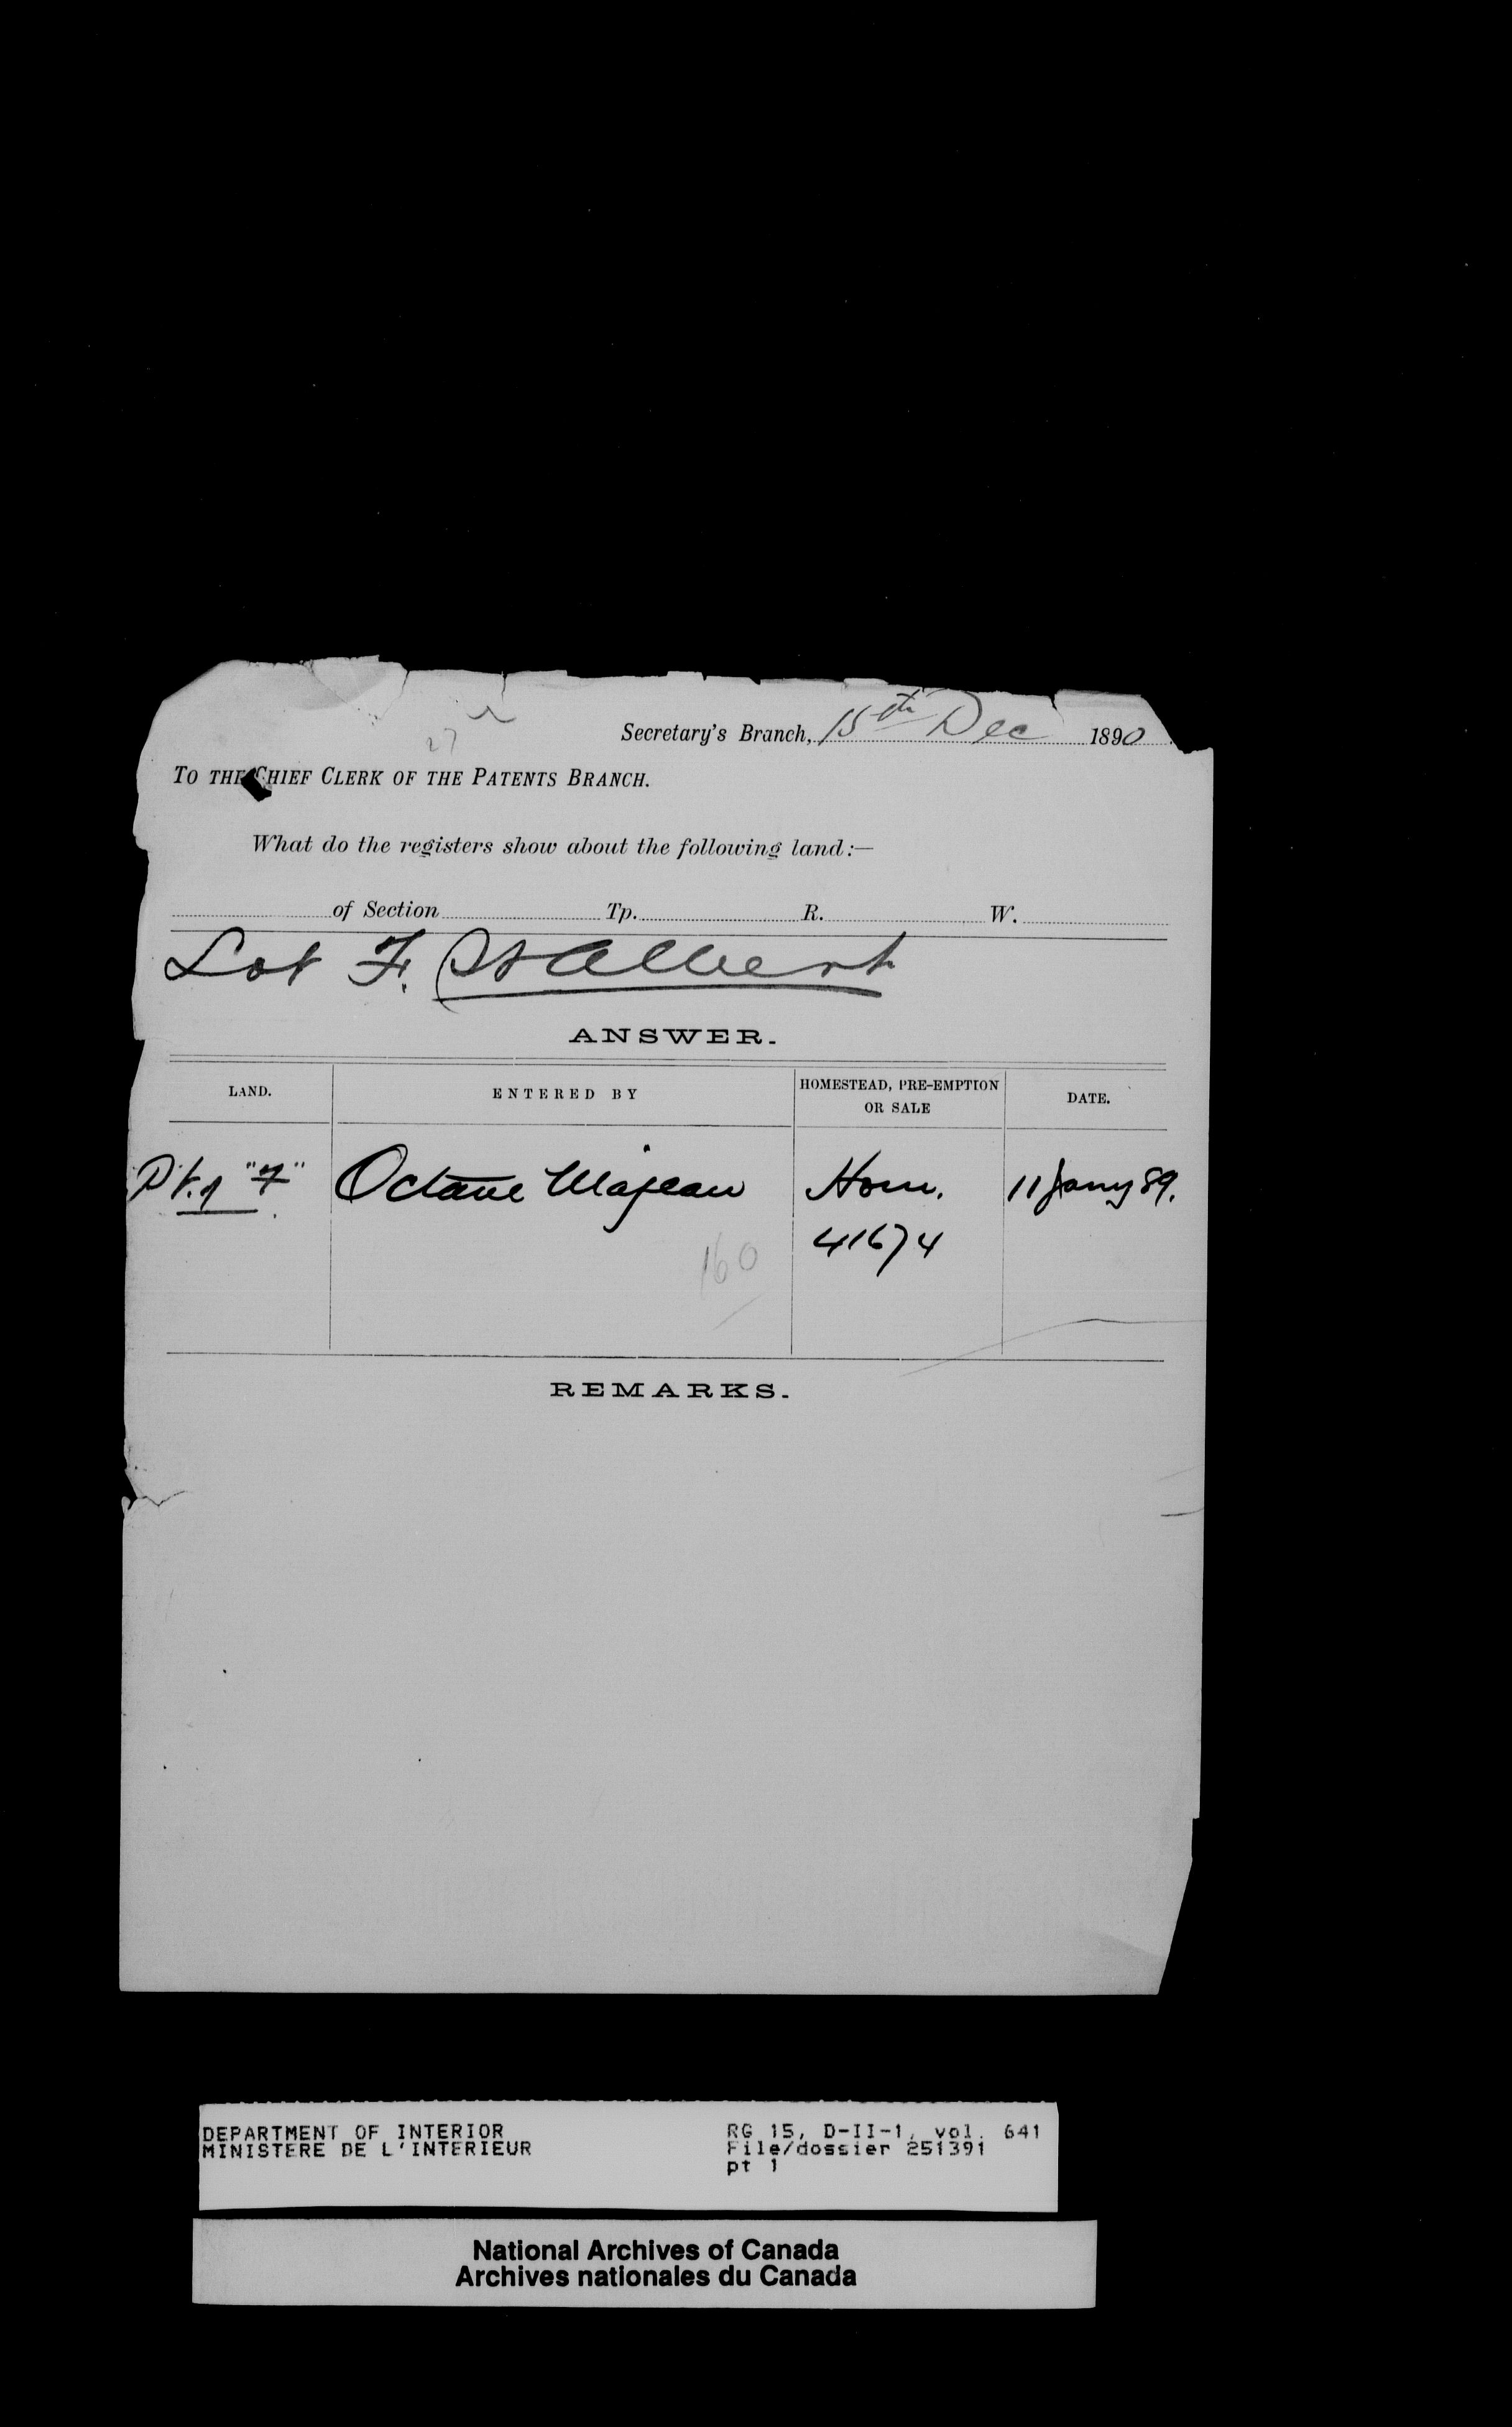 27
Secretary's Branch, 15th Dec 1890
TO THE CHIEF CLERK OF THE PATENTS BRANCH.
What do the registers show about the following land:—
of Section Tp. R. W.
Lot F. St Albert
ANSWER.
LAND. ENTERED BY HOMESTEAD, PRE-EMPTION OR SALE DATE.
Pt. of "F" Octave Majeau Hom. 11 Jany 89.
41674
160
REMARKS.
DEPARTMENT OF INTERIOR RG 15, D-II-1, vol. 641
MINISTERE DE L'INTERIEUR File/dossier 251391
pt 1
National Archives of Canada
Archives nationales du Canada